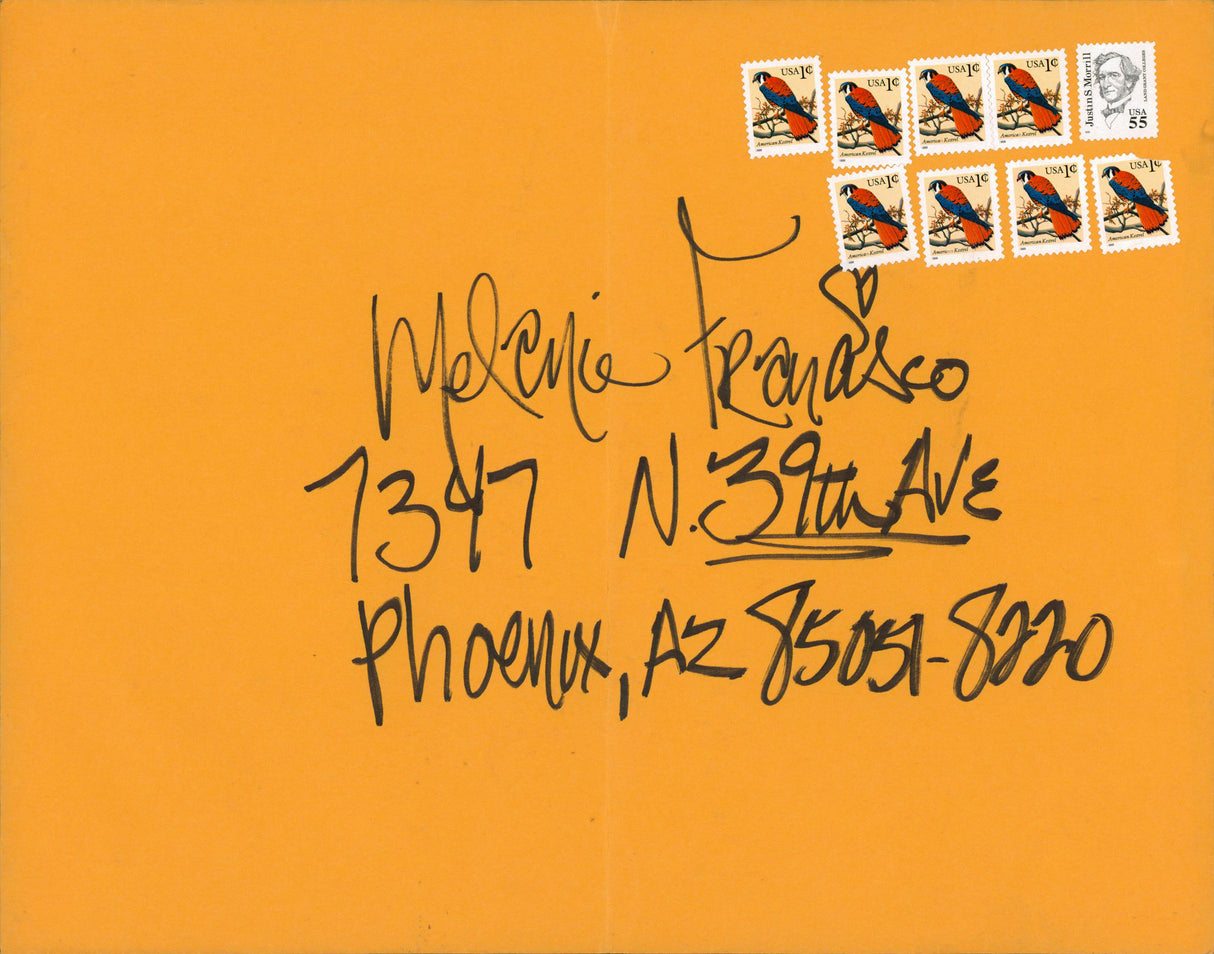 USA 1¢
American Kestrel
USA 1¢
American Kestrel
USA 1¢
American Kestrel
USA 1¢
American Kestrel
Justin S Morrill
LAND GRANT COLLEGES
USA
55
USA 1¢
American Kestrel
USA 1¢
American Kestrel
USA 1¢
American Kestrel
USA 1¢
American Kestrel
Melanie Franasco
7347 N. 39th AVE
Phoenix, AZ 85051-8220